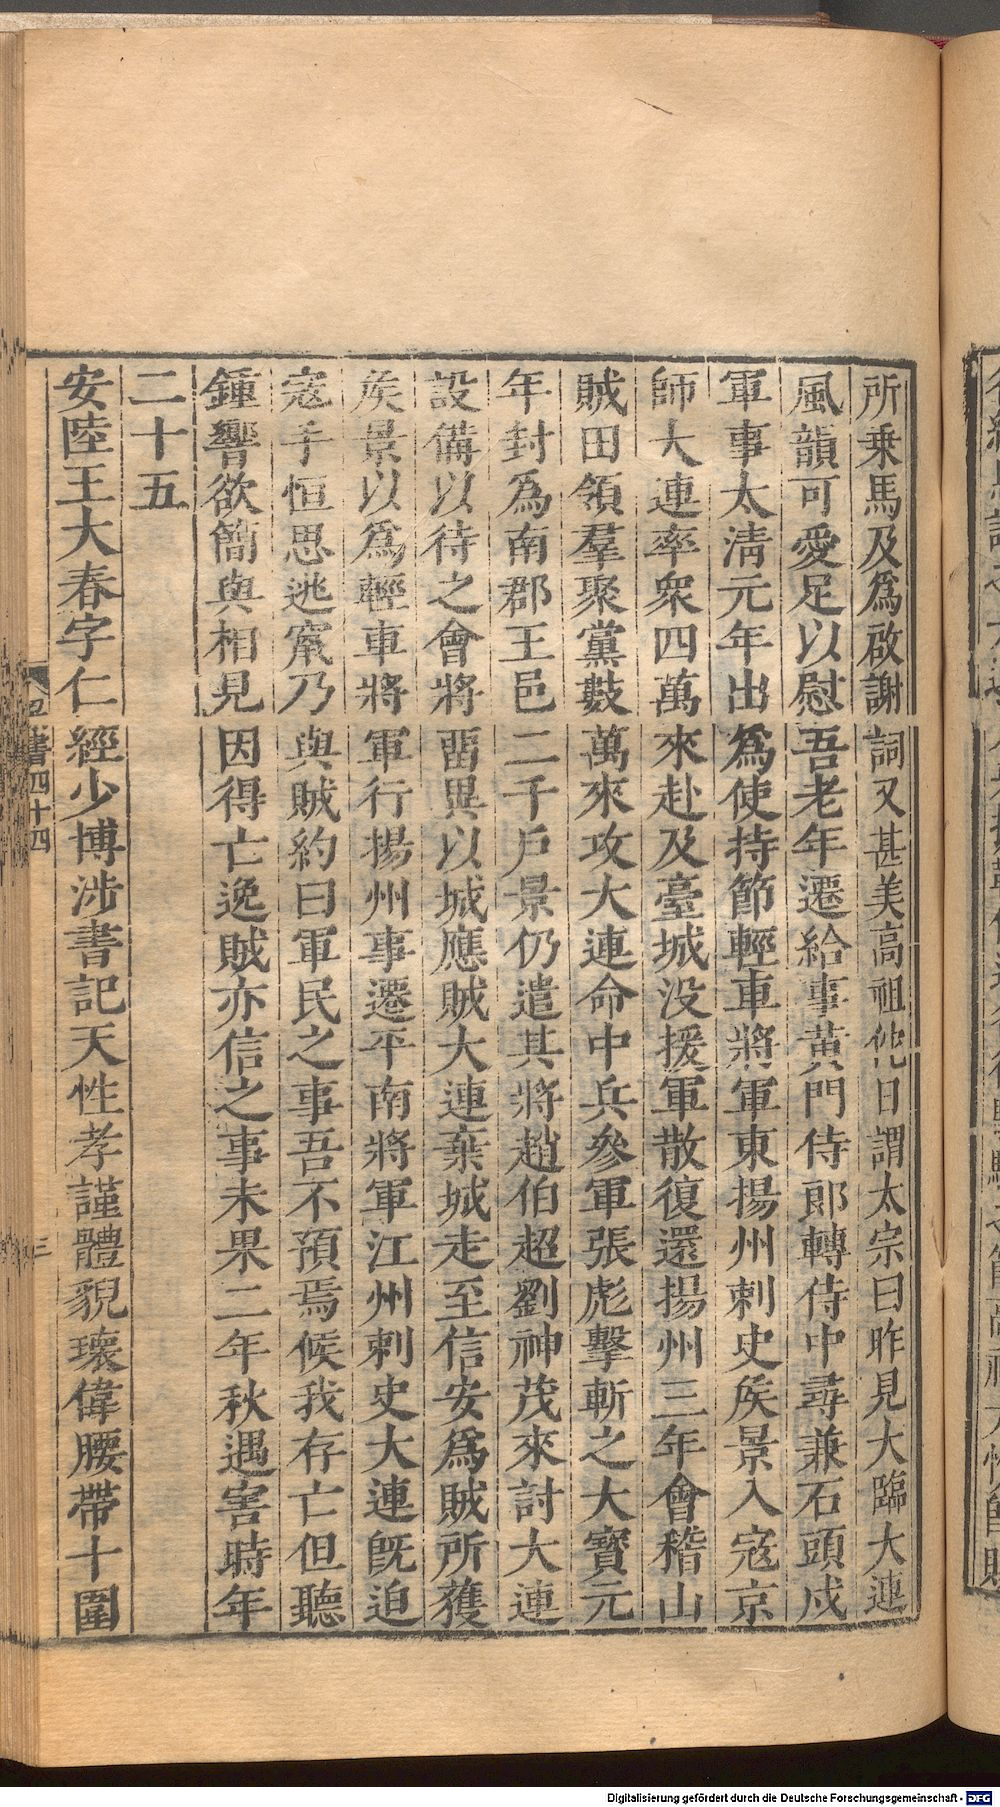 所乗馬及爲啟謝詞又甚美高祖他日謂太宗曰昨見大臨大連
風韻可愛足以慰吾老年遷給事黃門侍郎轉侍中尋兼石頭戍
軍事太清元年出爲使持節輕車將軍東揚州刺史矦景入寇京
師大連率衆四萬來赴及臺城没援軍散復還揚州三年會稽山
賊田領羣聚黨數萬來攻大連命中兵參軍張彪擊斬之大寶元
年封爲南郡王邑二千戶景仍遣其將趙伯超劉神茂來討大連
設備以待之會將畱異以城應賊大連棄城走至信安爲賊所獲
矦景以爲輕車將軍行揚州事遷平南將軍江州刺史大連旣迫
寇手恒思逃竄乃與賊約曰軍民之事吾不預焉候我存亡但聽
鍾響欲簡與相見因得亡逸賊亦信之事未果二年秋遇害時年
二十五
安陸王大春字仁經少博涉書記天性孝謹體貌瓌偉腰帶十圍
書四十四
三
Digitalisierung gefördert durch die Deutsche Forschungsgemeinschaft - DFG